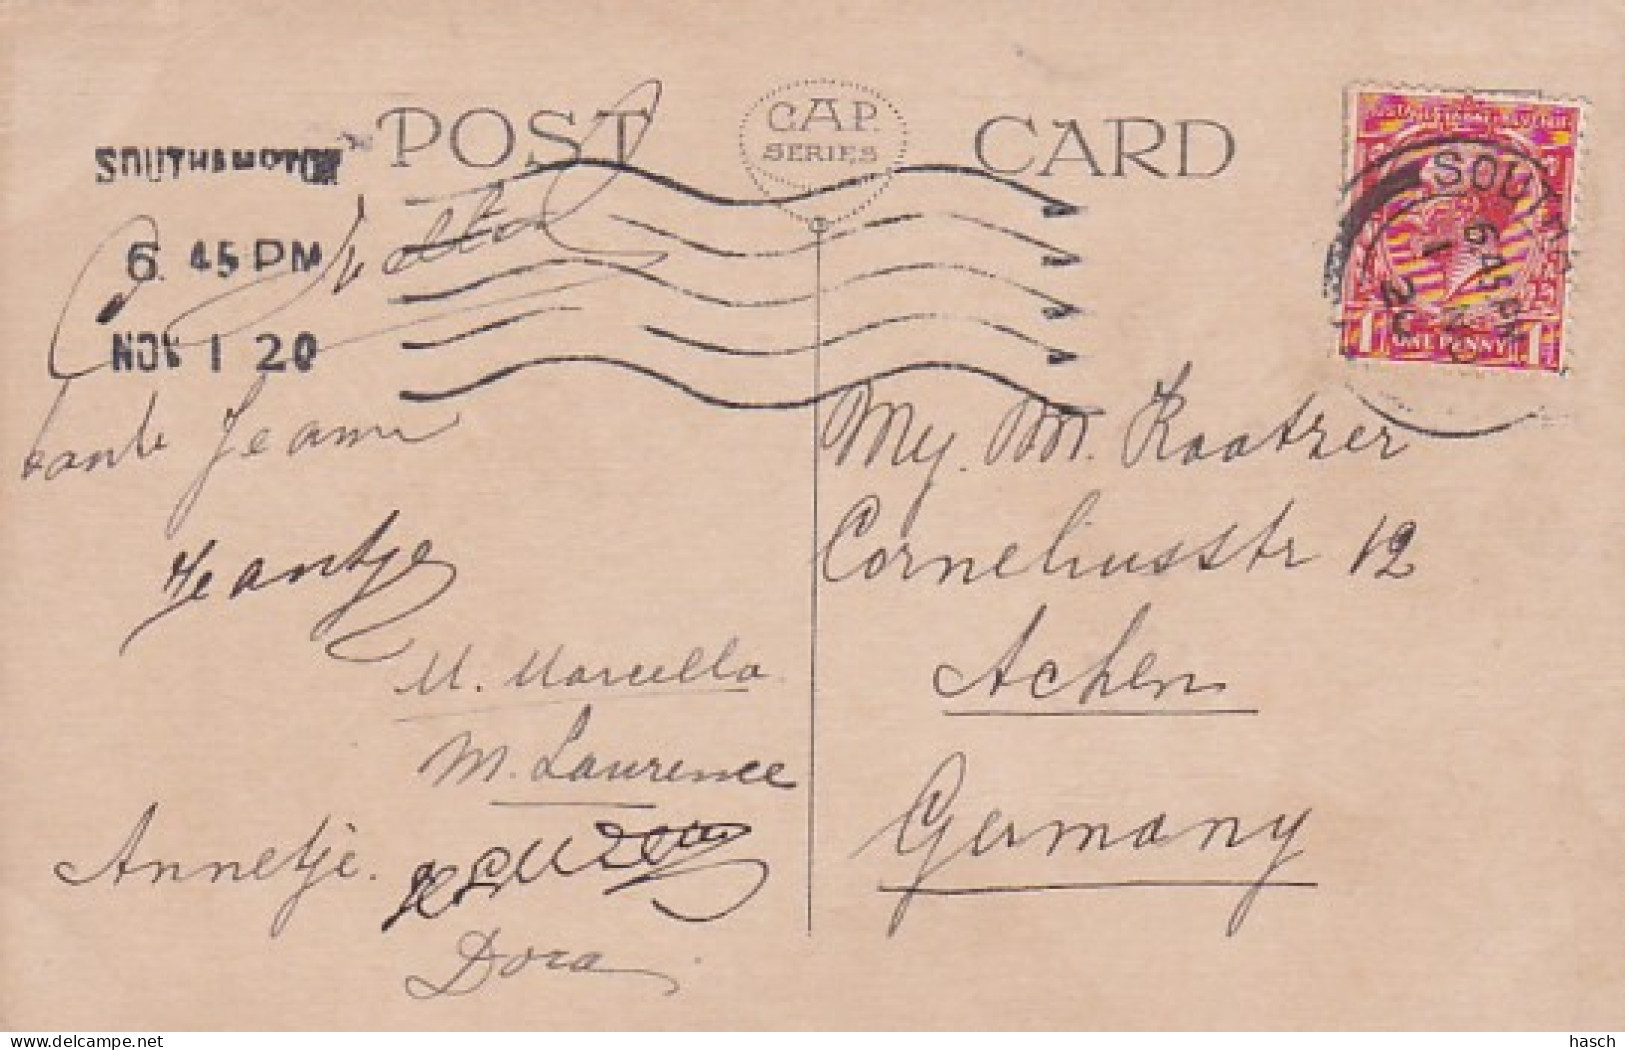 POST CARD
CAP.
SERIES
SOUTHAMPTON
6. 45 PM
NOV 1 20
tante Jeanne
Jeantje
M. Marcella
M. Laurence
Annetje.
Dora
SOUTH
6.45 PM
1 NO
20
1 ONE PENNY 1
My. M. Kaatzer
Corneliusstr 12
Achen
Germany
hasch